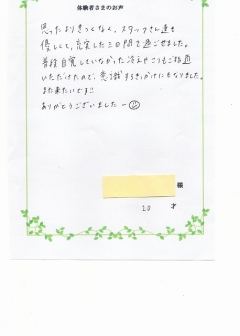 体験者さまのお声
思ったよりきつくなく、スタッフさん達も
優しくて、充実した三日間で過ごせました。
普段自覚していなかった冷えやこりもご指
いただけたので、意識するきっかけにもなりました。
また来たいです!
ありがとうございましたー
様
20 才